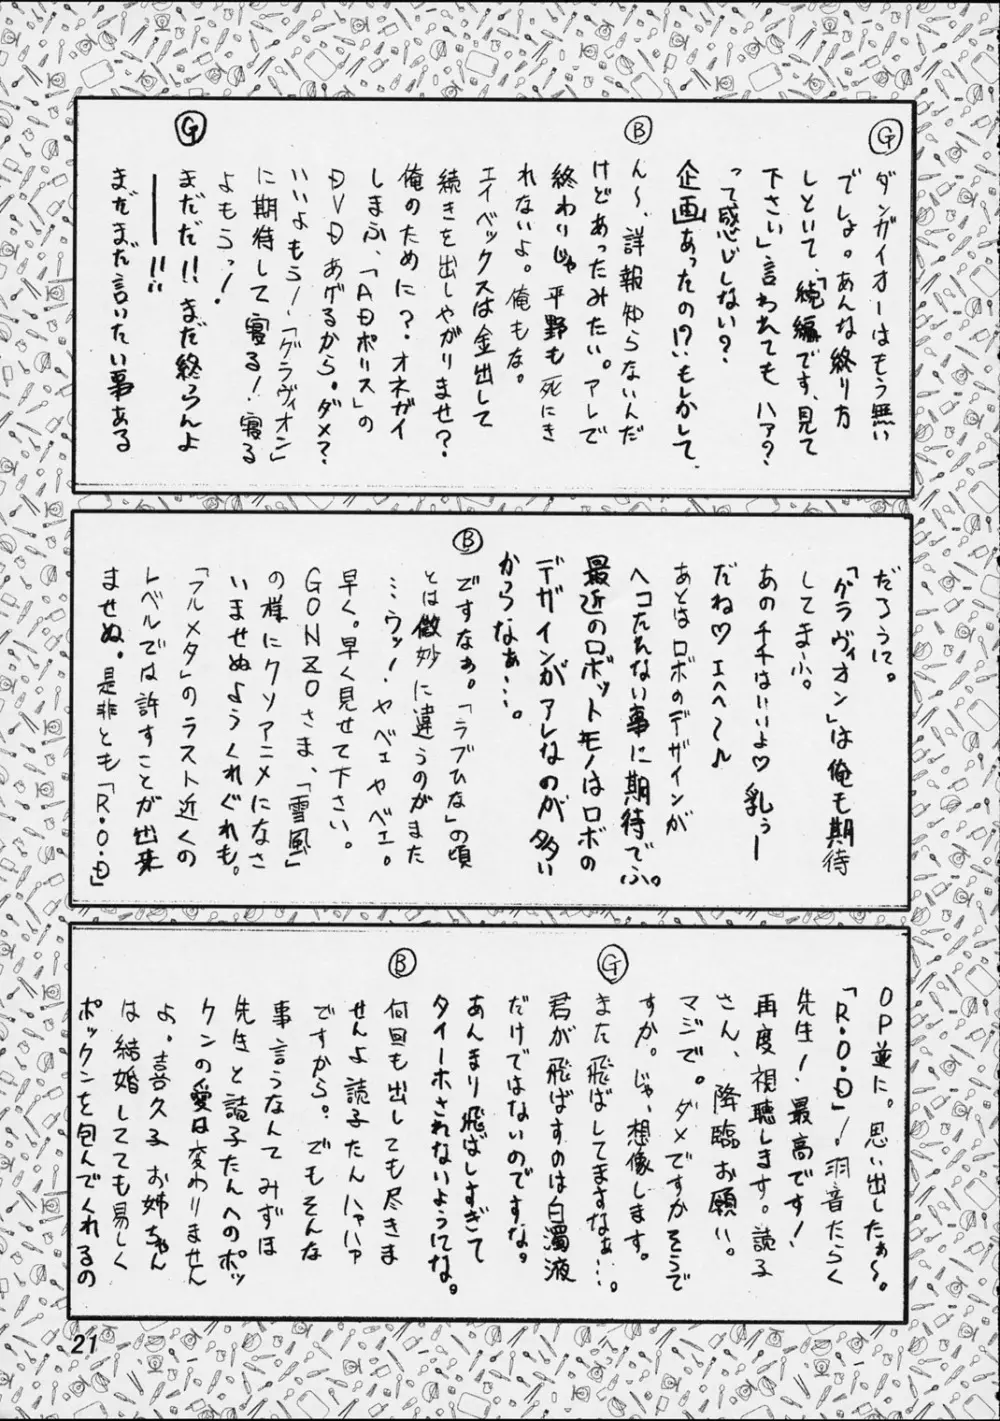 G
ダンガイオーはもう無い
でしょ。あんな終り方
しといて、「続編です、見て
下さい」言われても ハァ?
って感じしない?
企画あったの!?もしかして、
B
ん〜、詳報知らないんだ
けどあったみたい。アレで
終わりじゃ平野も死にき
れないよ。俺もな。
エイベックスは金出して
続きを出しやがりませ?
俺のために?オネガイ
しまふ、「ADポリス」の
DVDあげるから。ダメ?
いいよもう!「グラヴィオン」
に期待して寝る!寝る
よもう!
G
まだだ!!まだ終らんよ
――――!!
まだまだ言いたい事ある
だろうに。
「グラヴィオン」は俺も期待
してまふ。
あの千千はいいよ♡乳ぅー
だね♡エへへ〜♪
あとはロボのデザインが
ヘコたれない事に期待でふ。
最近のロボットモノはロボの
デザインがアレなのが多い
からなぁ…。
B
ですなぁ。「ラブひな」の頃
とは微妙に違うのがまた
…ウッ!ヤベェヤベェ。
早く。早く見せて下さい。
GONZOさま、「雪風」
の様にクソアニメになさ
いませぬようくれぐれも。
「フルメタ」のラスト近くの
レベルでは許すことが出来
ませぬ。是非とも「R・O・D」
OP並に。思い出したぁ〜。
「R・O・D」!羽音たらく
先生!最高です!
再度視聴します。読子
さん、降臨お願い。
マジで。ダメですかそうで
すか。じゃ、想像します。
G
また飛ばしてますなぁ…。
君が飛ばすのは白濁液
だけではないのですな。
あんまり飛ばしすぎて
タイーホされないようにな。
B
何回も出しても尽きま
せんよ読子たんハァハァ
ですから。でもそんな
事言うなんてみずほ
先生と読子たんへのポッ
クンの愛は変わりません
よ。喜久子お姉ちゃん
は結婚してても易しく
ポックンを包んでくれるの
21